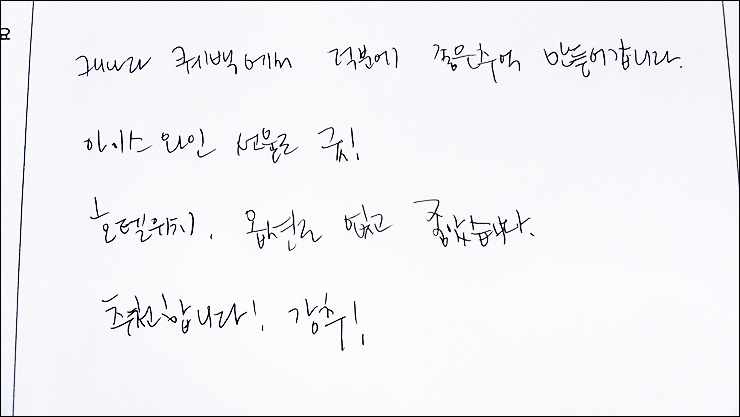 요
캐나다 퀘백에서 덕분에 좋은추억 만들어갑니다.
아이스 와인 선물로 굿!
호텔위치, 옵션도 없고 좋았습니다.
추천합니다!. 강추!